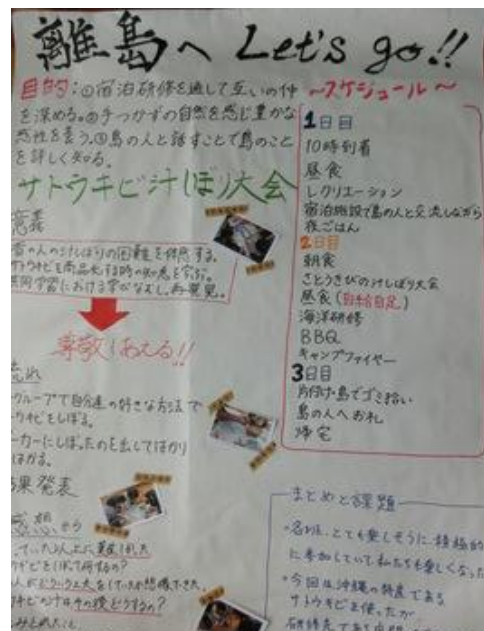 離島へ Let's go!!
目的:①宿泊研修を通して互いの仲
を深める。②手つかずの自然を感じ豊かな
感性を養う。③島の人と話すことで島のこと
を詳しく知る。
サトウキビ汁しぼり大会
意義
の人の汁しぼりの困難を体感する。
サトウキビを商品化する時の知恵を学ぶ。
共同学習における学びなおし、再発見。
尊敬しあえる!!
流れ
グループで自分達の好きな方法で
ウキビをしぼる。
ーカーにしぼったのを出してはかり
はかる。
果発表
感想から
〜スケジュール〜
1日目
10時到着
昼食
レクリエーション
宿泊施設で島の人と交流しながら
夜ごはん
2日目
朝食
さとうきびの汁しぼり大会
昼食(自給自足)
海洋研修
BBQ
キャンプファイヤー
3日目
片付け・島でゴミ拾い
島の人へお礼
帰宅
まとめと課題
・各班、とても楽しそうに、積極的
に参加していて私たちも楽しくなった
・今回は沖縄の特産である
サトウキビを使ったが